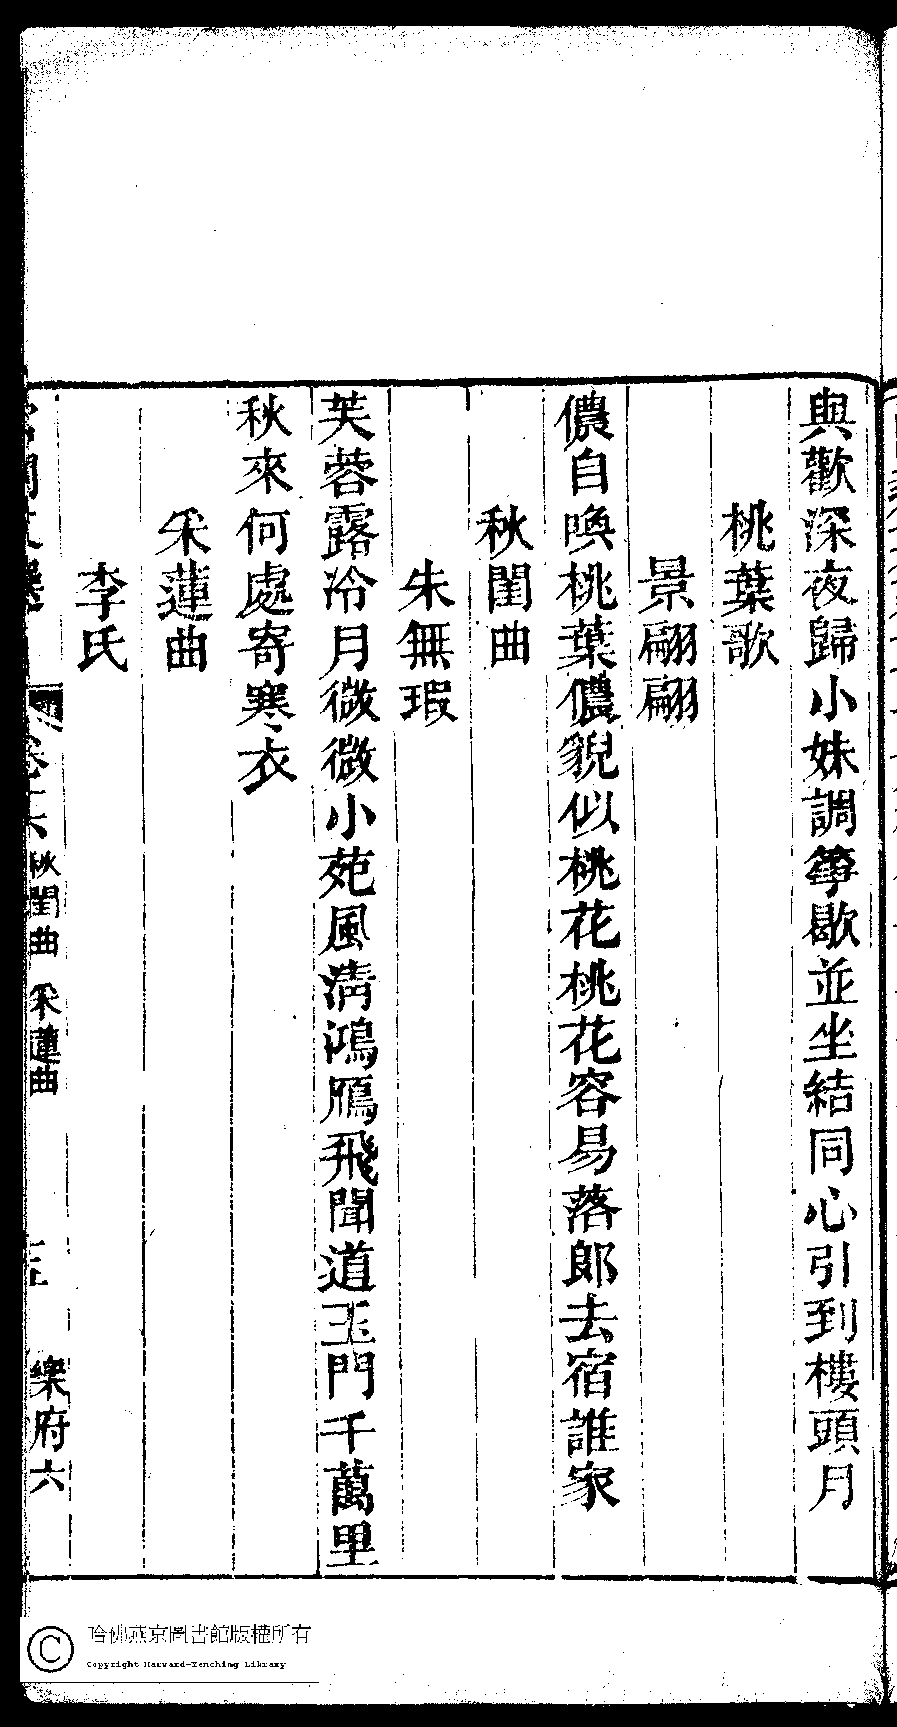 與歡深夜歸小妹調箏歇並坐結同心引到樓頭月
桃葉歌
景翩翩
儂自喚桃葉儂貎似桃花桃花容易落郎去宿誰家
秋閨曲
朱無瑕
芙蓉露冷月微微小苑風淸鴻雁飛聞道玉門千萬里
秋來何處寄寒衣
采蓮曲
李氏
秋閨曲 采蓮曲
樂府六
哈佛燕京圖書館版權所有
Copyright Harvard-Yenching Library